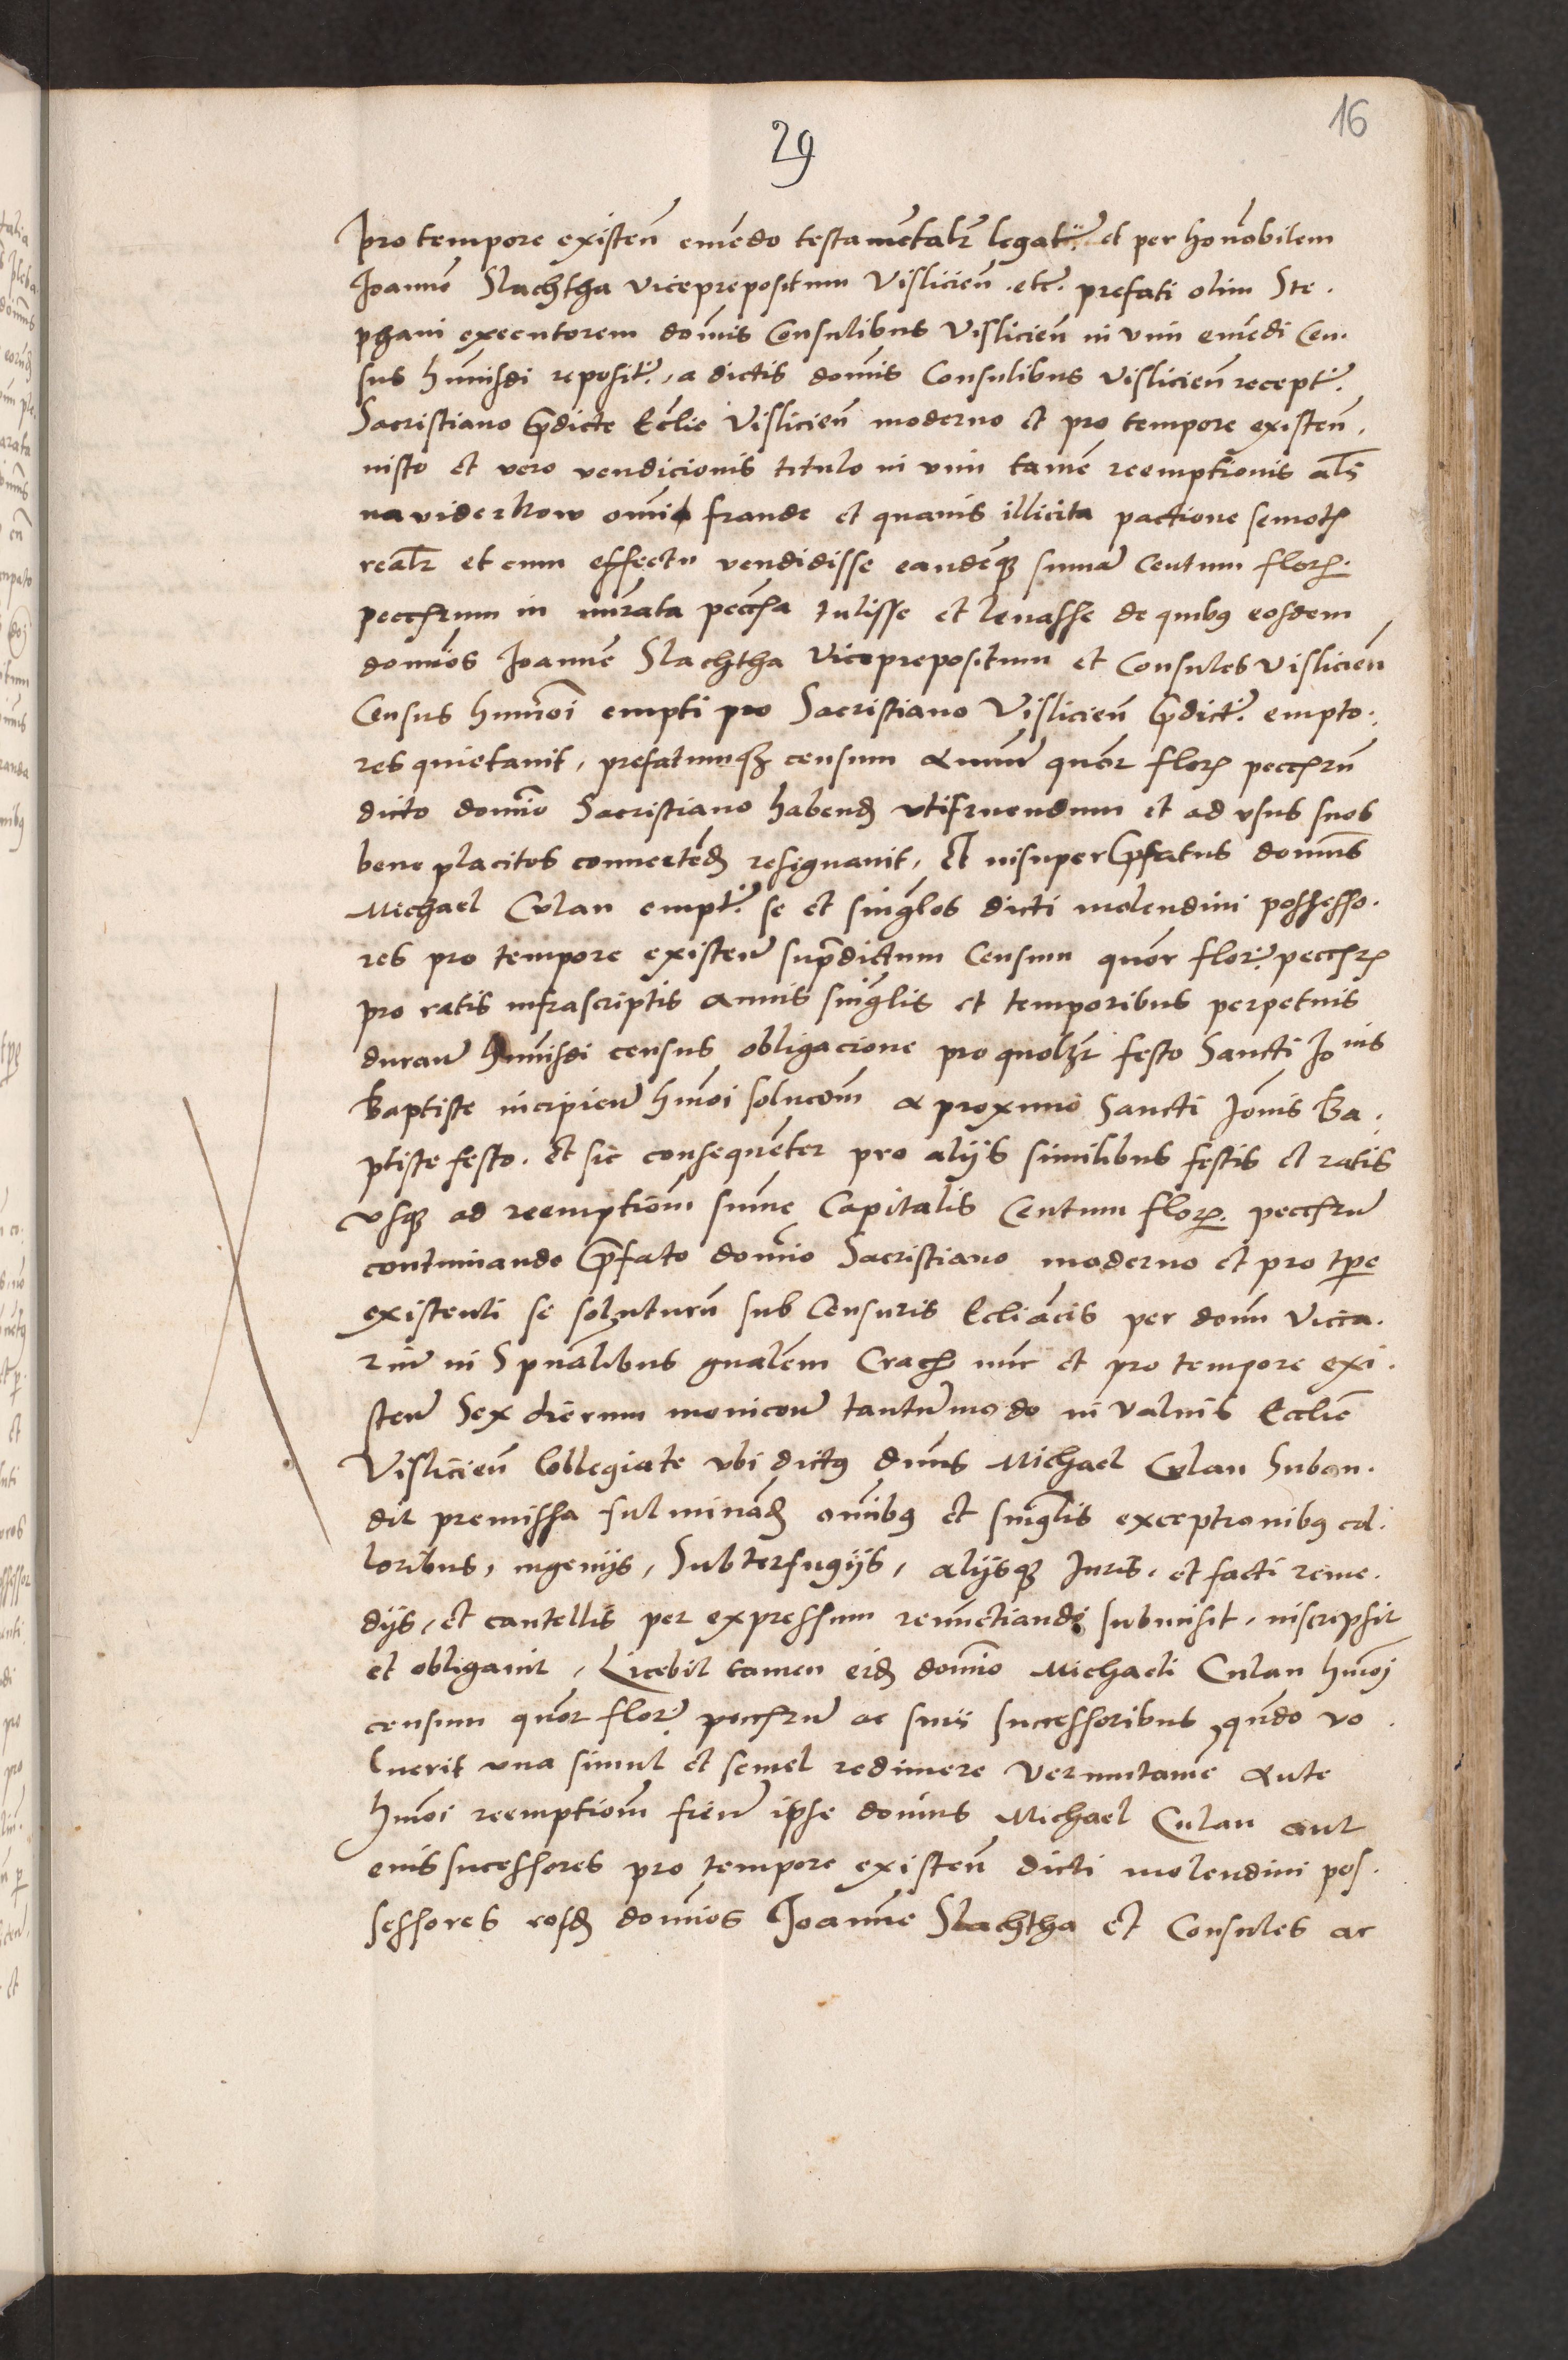 16
29
pro tempore existen̄ emēdo testamētalr̄ legat̄. et per honōbilem
Joannē Slachtha viceprepositum Vislicien̄ .etc̄. prefati olim Ste.
phani executorem domīs Consulibus Vislicien̄ in vim emēdi Cen.
sus hmn̄isdi reposit̄., a dictis domīs Consulibus Vislicien̄ recept̄.
Sacristiano p̄dicte Ecclīe Vislicien̄ moderno et pro tempore existen̄,
iusto et vero vendicionis titulo in vim tamē reemptionis al̄s
na viderkow omī fraude et quauis illicita pactione semotꝫ
real̄r et cum effectu vendidisse eandēqꝫ sum̄ā Centum florꝫ.
peccꝫrum in nūrata peccꝫa tulisse et leuasse de quibꝰ eosdem
domīos Joannē Slachtha Viceprepositum et Consules vislicien̄
Census hmn̄oi empti pro Sacristiano Vislicien̄ p̄dict̄. empto.
res quietauit, prefatumqꝫ censum Annuū quōr florꝫ peccꝫrū
dicto domīo Sacristiano habendꝫ vtifruendum et ad vsus suos
bene placitos conuertēdꝫ resignauit, Et insuper p̄fatus domīus
Michael Culan empt̄. se et sinḡlos dicti molendini possesso.
res pro tempore existen̄ sup̄dictum Censum quōr flor̄. peccꝫrꝫ
pro ratis infrascriptis Annis sinḡlis et temporibus perpetuis
duran̄ hmn̄isdi census obligacione pro quolꝫt festo Sancti Jo nis
Baptiste incipien̄ hmōi solucōm̄ A proximo Sancti Joīnis Ba.
ptiste festo. et sic consequēter pro alijs similibus festis et ratis
vsqꝫ ad reemptiōm̄ sum̄e Capitalis Centum florꝫ. peccꝫrū
continuando p̄fato domīo Sacristiano moderno et pro tp̄e
existenti se soluturū sub Censuris Ecl̄iācis per domm̄ Vica.
riū in Sp̄ualibus gn̄alem̄ Cracꝫ nūc et pro tempore exi.
sten̄ Sex dierum monicōn̄ tantum̄modo in valuis Ecclīe
Vislicien̄ Collegiate vbi dictꝰ dnūs Michael Culan Suban.
dit premissa fulminādꝫ omībꝰ et sinḡlis exceptionibꝰ col.
loribus, ingenijs, Subterfugijs, alijsqꝫ Juris, et facti reme.
dijs, et cautellis per expressum renunctiandi submisit, inscripsit
et obligauit, Licebit tamen eidꝫ domīo Michaeli Culan hmōi
censum quōr flor̄. peccꝫrū ac suis successoribus, qn̄do vo.
luerit vna simul et semel redimere Verumtamē Ante
hmōi reemptiōm̄ fien̄ ipse domīus Michael Culan aut
eius sucessores pro tempore existen̄ dicti molendini pos.
sessores eosdꝫ domīos Joannē Slachtha et Consules ac